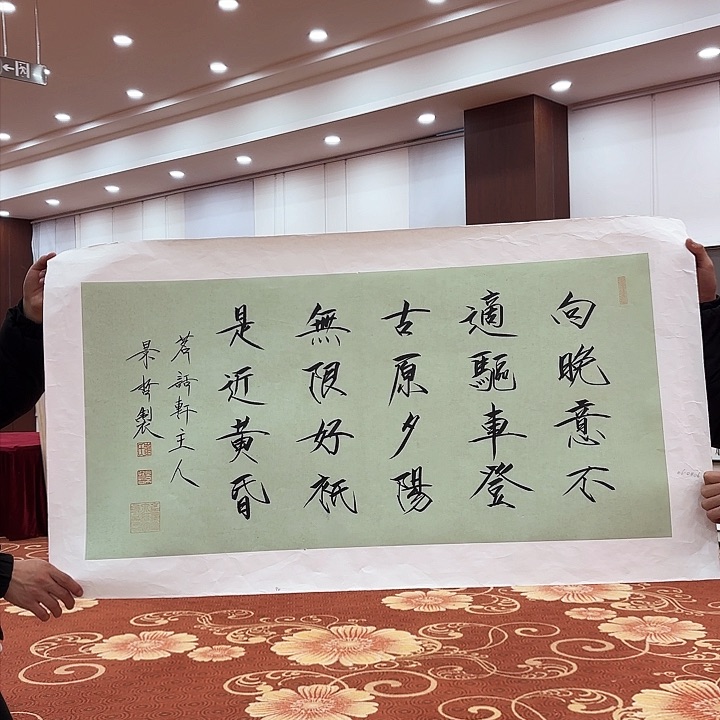 向晚意不
適驅車登
古原夕陽
無限好祇
是近黃昏
茗話軒主人
製